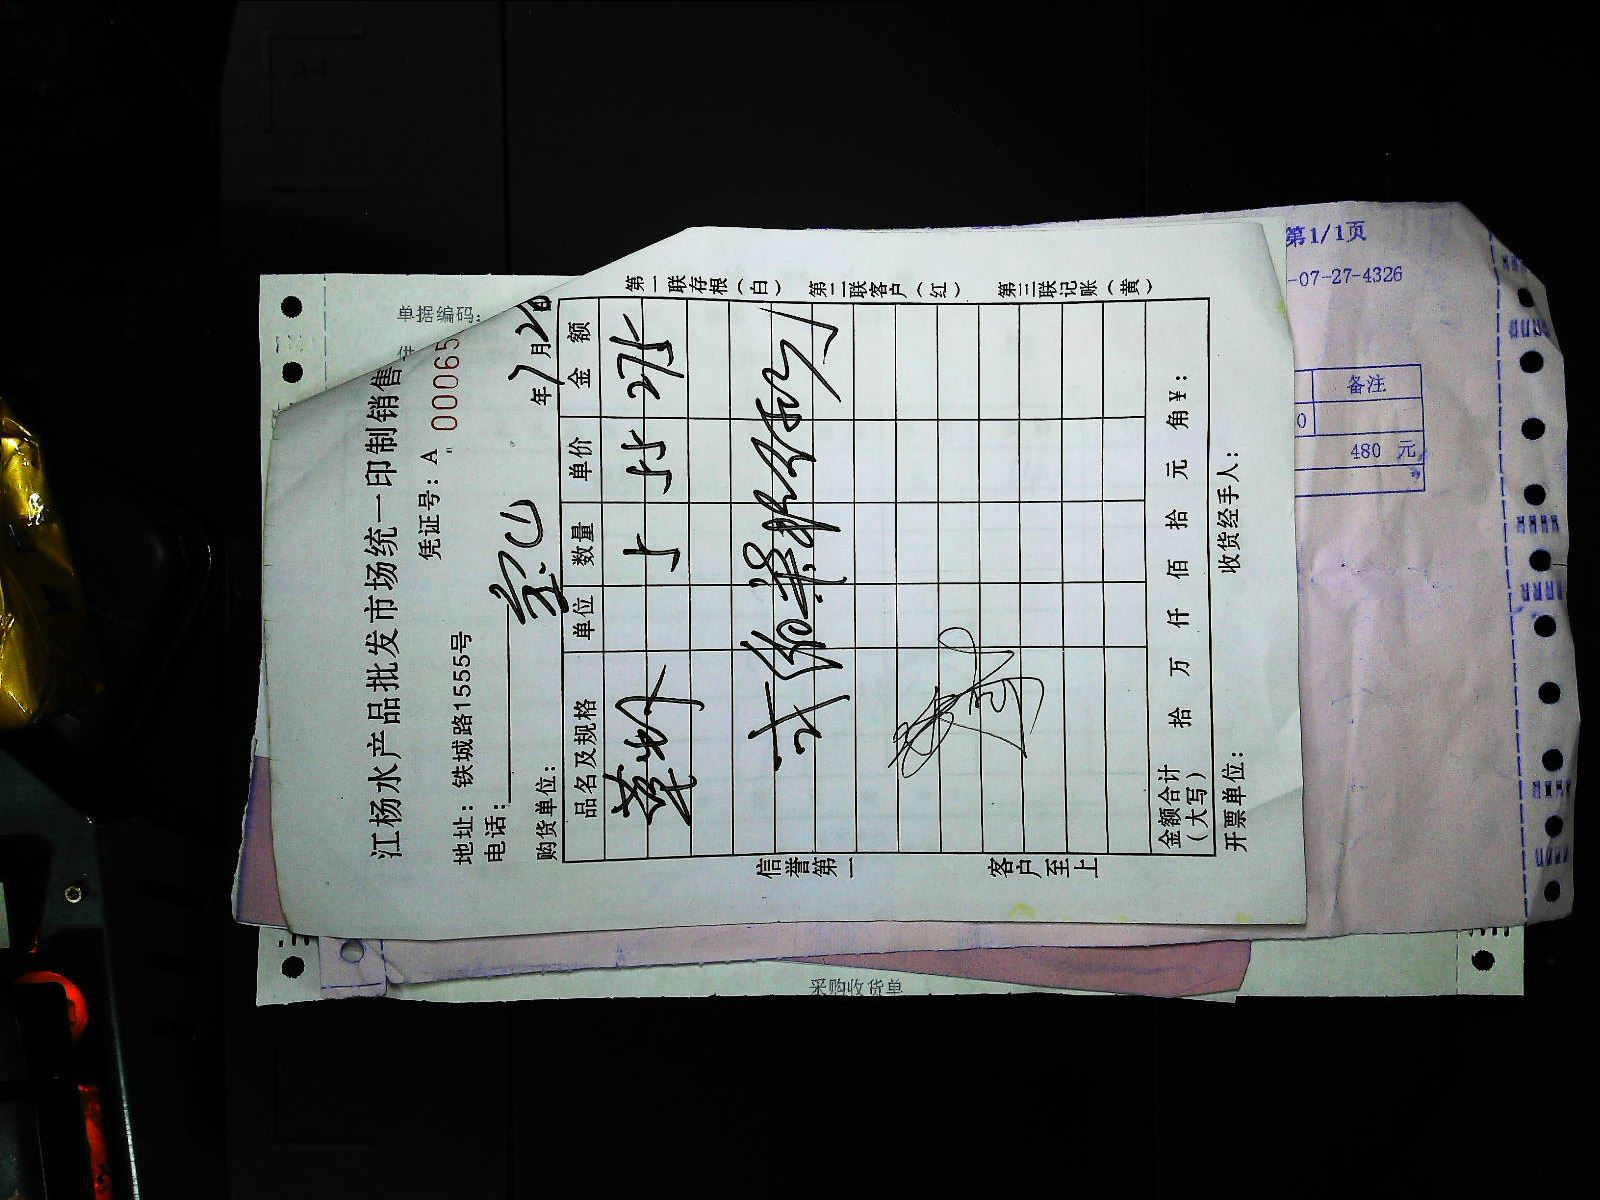 江杨水产品批发市场统一印制销售
凭证号：A 00065
地址：铁城路1555号
电话：
购货单位：
年7月26
品名及规格 单位 数量 单价 金额
5 55 275
金额合计（大写） 拾 万 仟 佰 拾 元 角 ¥：
开票单位： 收货经手人：
第一联存根（白） 第二联客户（红） 第三联记账（黄）
信誉第一 客户至上
单据编码：
供
采购收货单
第1/1页
-07-27-4326
备注
0
480 元